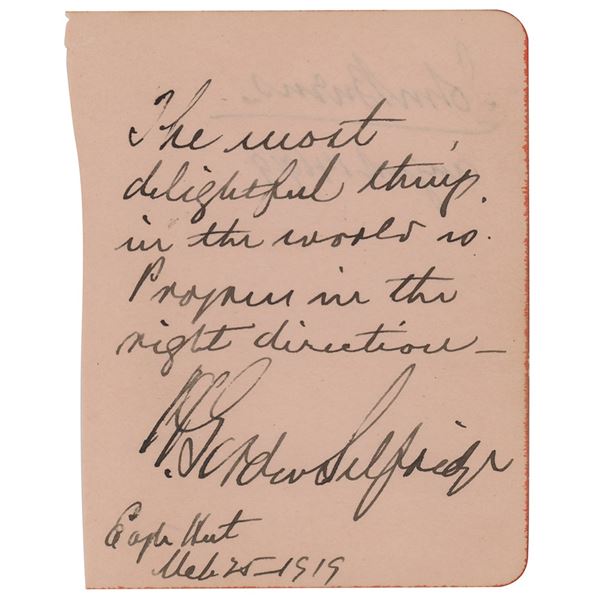 The most
delightful thing
in the world is
Progress in the
right direction –
H. Gordon Selfridge
Eagle Hut
Mch 25 – 1919